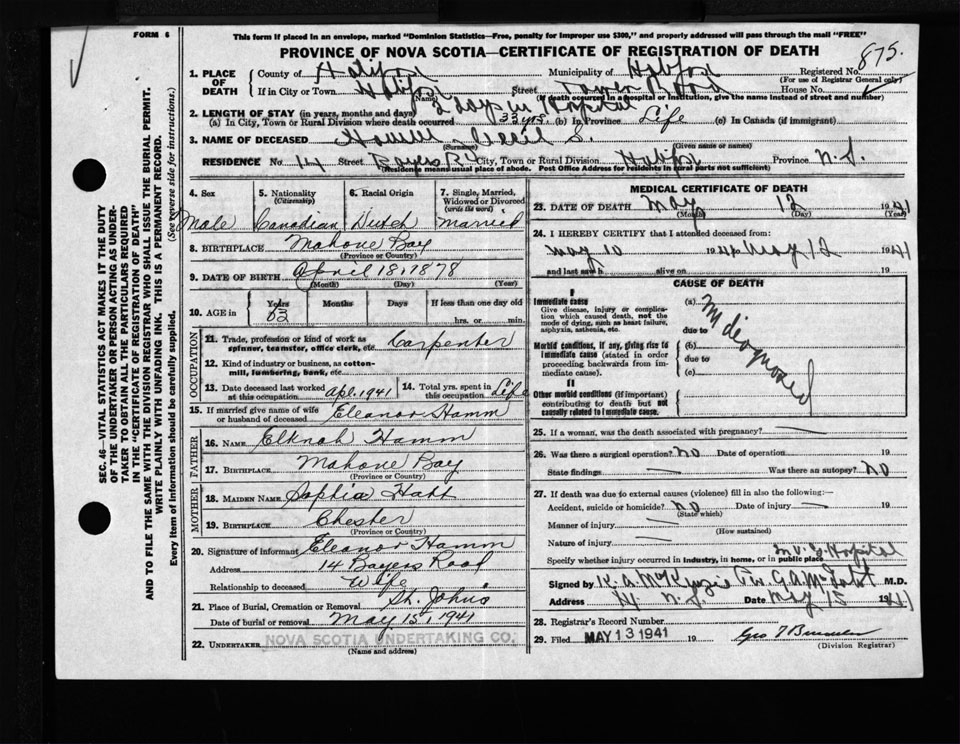 FORM 6
This form if placed in an envelope, marked "Dominion Statistics—Free, penalty for improper use $300," and properly addressed will pass through the mail "FREE"
PROVINCE OF NOVA SCOTIA—CERTIFICATE OF REGISTRATION OF DEATH
875.
1. PLACE OF DEATH County of Halifax Municipality of Halifax Registered No.
(For use of Registrar General only)
If in City or Town Halifax Street Tower Road House No.
(Name) (If death occurred in a hospital or institution, give the name instead of street and number)
2 days in Hospital
2. LENGTH OF STAY (in years, months and days)
(a) In City, Town or Rural Division where death occurred 33 yrs. (b) In Province Life (c) In Canada (if immigrant)
3. NAME OF DECEASED Hamm Cecil S.
(Surname) (Given name or names)
RESIDENCE No. 14 Street Bayers Rd City, Town or Rural Division Halifax Province N.S.
(Residence means usual place of abode. Post Office Address for residents in rural parts not sufficient)
4. Sex Male
5. Nationality (Citizenship) Canadian
6. Racial Origin Dutch
7. Single, Married, Widowed or Divorced (write the word) Married
8. BIRTHPLACE Mahone Bay
(Province or Country)
9. DATE OF BIRTH April 18, 1878
(Month) (Day) (Year)
10. AGE in Years 63 Months Days If less than one day old
hrs. or min.
OCCUPATION
11. Trade, profession or kind of work as spinner, teamster, office clerk, etc. Carpenter
12. Kind of industry or business, as cotton-mill, lumbering, bank, etc.
13. Date deceased last worked at this occupation Apl. 1941
14. Total yrs. spent in this occupation Life
15. If married give name of wife or husband of deceased Eleanor Hamm
FATHER
16. NAME Elknah Hamm
17. BIRTHPLACE Mahone Bay
(Province or Country)
MOTHER
18. MAIDEN NAME Sophia Hatt
19. BIRTHPLACE Chester
(Province or Country)
20. Signature of informant Eleanor Hamm
Address 14 Bayers Road
Relationship to deceased Wife
21. Place of Burial, Cremation or Removal St. Johns
Date of burial or removal May 15, 1941
22. UNDERTAKER NOVA SCOTIA UNDERTAKING CO.
(Name and address)
MEDICAL CERTIFICATE OF DEATH
23. DATE OF DEATH May 12 1941
(Month) (Day) (Year)
24. I HEREBY CERTIFY that I attended deceased from:
May 10 1941 to May 12 1941
and last saw h alive on 19
CAUSE OF DEATH
I
Immediate cause
Give disease, injury or complication which caused death, not the mode of dying, such as heart failure, asphyxia, asthenia, etc.
(a)
due to
Morbid conditions, if any, giving rise to immediate cause (stated in order proceeding backwards from immediate cause).
(b)
due to
(c)
II
Other morbid conditions (if important) contributing to death but not causally related to immediate cause.
25. If a woman, was the death associated with pregnancy?
26. Was there a surgical operation? No Date of operation 19
State findings Was there an autopsy? No
27. If death was due to external causes (violence) fill in also the following:—
Accident, suicide or homicide? No Date of injury 19
(State which)
Manner of injury
(How sustained)
Nature of injury
Specify whether injury occurred in industry, in home, or in public place
Hospital
Signed by K.A. McKenzie M.D.
Address N.S. Date May 15 1941
28. Registrar's Record Number
29. Filed MAY 13 1941 19
(Division Registrar)
SEC. 46—VITAL STATISTICS ACT MAKES IT THE DUTY OF THE UNDERTAKER OR PERSON ACTING AS UNDERTAKER TO OBTAIN ALL THE PARTICULARS REQUIRED IN THE "CERTIFICATE OF REGISTRATION OF DEATH"
AND TO FILE THE SAME WITH THE DIVISION REGISTRAR WHO SHALL ISSUE THE BURIAL PERMIT.
WRITE PLAINLY WITH UNFADING INK. THIS IS A PERMANENT RECORD.
Every item of Information should be carefully supplied. (See reverse side for instructions.)